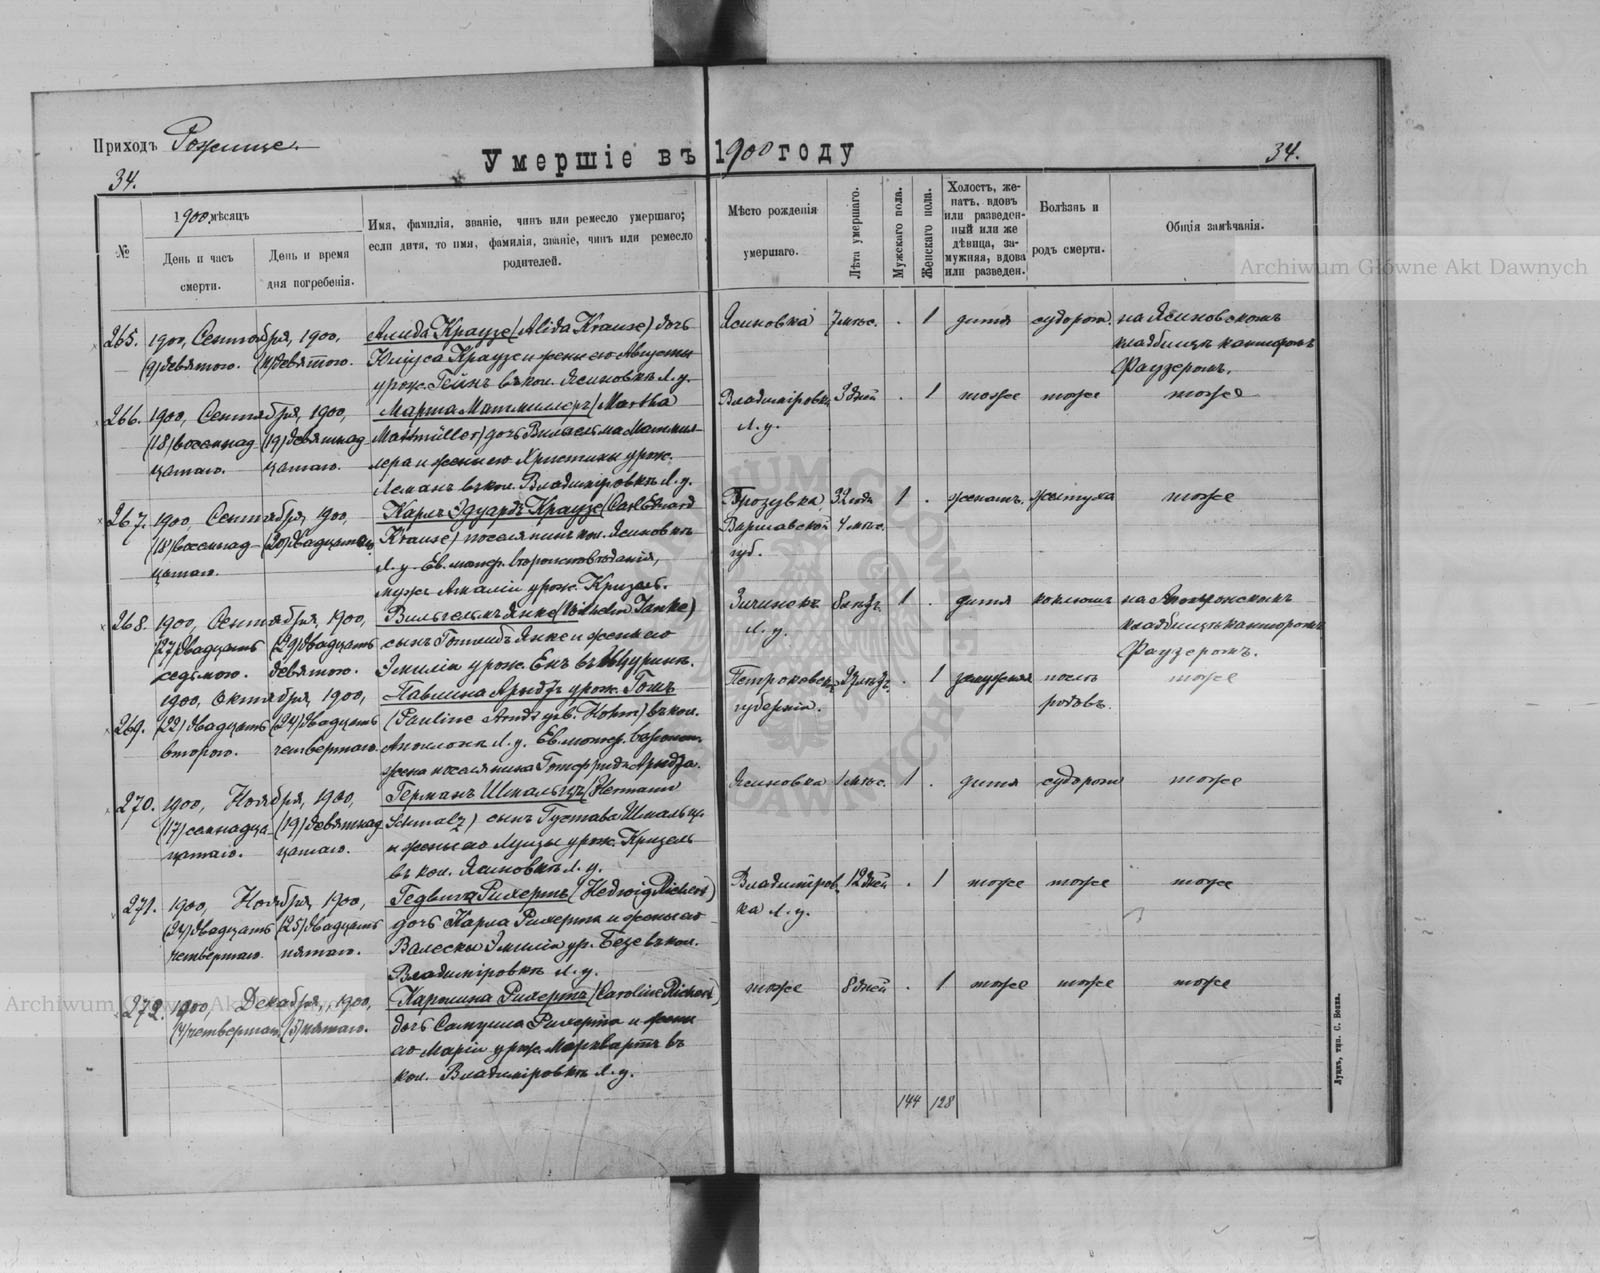 Приходъ Рожище.
Умершіе въ 1900 году
34.
34.
№
1900 мѣсяцъ
День и часъ смерти.
День и время дня погребенія.
Имя, фамилія, званіе, чинъ или ремесло умершаго;
если дитя, то имя, фамилія, званіе, чинъ или ремесло
родителей.
Мѣсто рожденія
умершаго.
Лѣта умершаго.
Мужскаго пола.
Женскаго пола.
Холостъ, же-
натъ, вдовъ
или разведен-
ный или же
дѣвица, за-
мужняя, вдова
или разведен.
Болѣзнь и
родъ смерти.
Общія замѣчанія.
265. 1900, Сентября, 1900, Алида Краузе (Alida Krause) дочь Ясиновка 7 мѣс. . 1 дитя судорож. на Ясиновскомъ
(9) девятого. девятого. Юліуса Краузе и жены его Августы кладбищѣ канторомъ
урож. Гейнъ въ кол. Ясиновкѣ Л. у. Фаузеромъ.
266. 1900, Сентября, 1900, Марта Матмиллеръ (Martha Владиміровка 3 дней . 1 тоже тоже тоже
(18) восемнад (19) девятнад Matmüller) дочь Вильгельма Матмил- Л. у.
цатаго. цатаго. лера и жены его Христины урож.
Леманъ въ кол. Владиміровкѣ Л. у.
267. 1900, Сентября, 1900, Карлъ Эдуардъ Краузе (Carl Eduard 32 года 1 . женатъ. желтуха тоже
(18) восемнад (20) двадцатаго Krause) поселянинъ кол. Ясиновкѣ Варшавской 4 мѣс.
цатаго. Л. у. Ев. лютер. вѣроисповѣданія, губ.
мужъ Амаліи урож. Кризель.
268. 1900, Сентября, 1900, Вильгельмъ Янке (Wilhelm Janke) 1 . дитя коклюшъ на
(27) двадцать (29) двадцать сынъ Готлиба Янке и жены его Л. у. кладбищѣ канторомъ
седьмого. девятого. Эмиліи урож. въ Щуринѣ. Фаузеромъ.
1900, Октября, 1900, Павлина Арндтъ урож. Гомъ Петроковск. . 1 замужняя послѣ тоже
269. (22) двадцать (24) двадцать (Pauline Arndt geb. Hohm) въ кол. губерніи. родовъ.
второго. четвертаго. Л. у. Ев. лютер. вѣроисп.
жена поселянина Готфрида Арндта.
270. 1900, Ноября, 1900, Германъ Шмальцъ (Hermann Ясиновка 1 мѣс. 1 . дитя судороги тоже
(17) семнадца (19) девятнад Schmalz) сынъ Густава Шмальца
цатаго. цатаго. и жены его Луизы урож. Кризель
въ кол. Ясиновкѣ Л. у.
271. 1900, Ноября, 1900, Гедвигъ Рихертъ (Hedwig Richert) Владиміров- 12 дней . 1 тоже тоже тоже
(24) двадцать (25) двадцать дочь Карла Рихерта и жены его ка Л. у.
четвертаго. пятаго. Валески Эмиліи ур. въ кол.
Владиміровкѣ Л. у.
272. 1900, Декабря, 1900, Каролина Рихертъ (Caroline Richert) тоже 8 дней . 1 тоже тоже тоже
(4) четвертаго (5) пятаго. дочь Самуила Рихерта и жены
его Маріи урож. Марквартъ въ
кол. Владиміровкѣ Л. у.
144 128
Луцкъ, тип. С. Бонка.
Archiwum Główne Akt Dawnych
Archiwum Główne Akt Dawnych